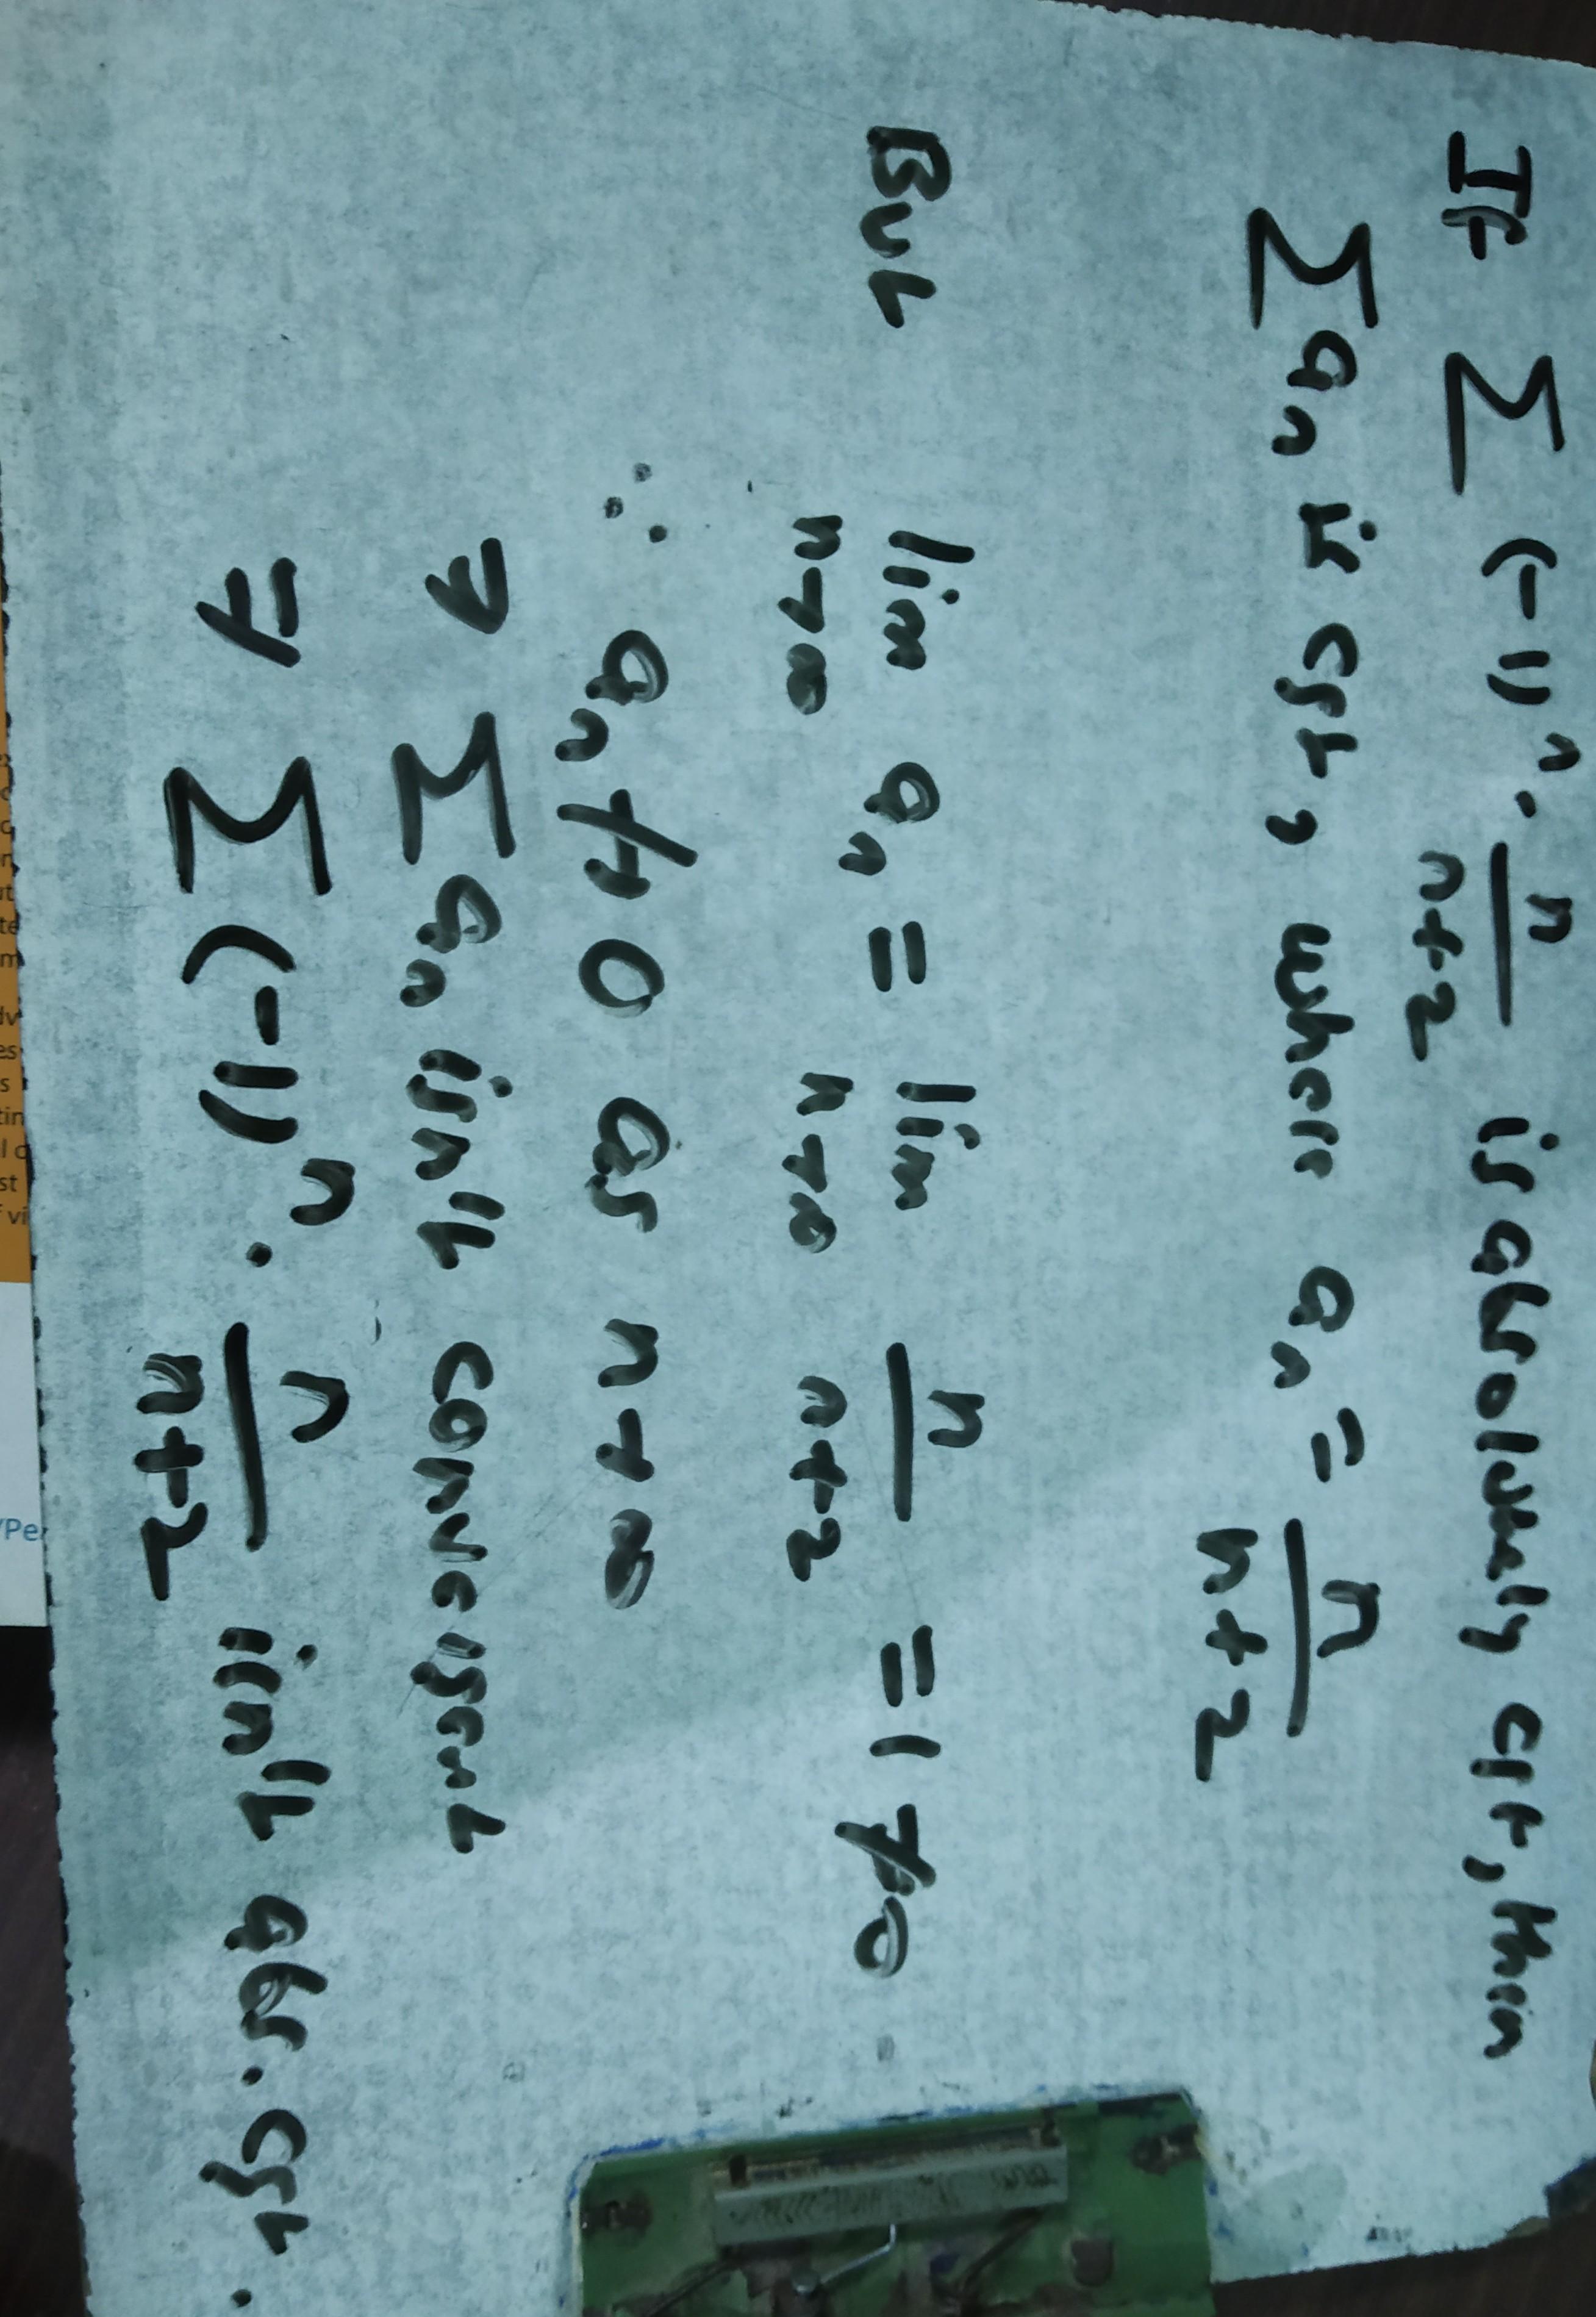 If ∑ (-1)ⁿ · n/(n+2) is absolutely cgt, then
∑ aₙ is cgt, where aₙ = n/(n+2)
But lim n→∞ aₙ = lim n→∞ n/(n+2) = 1 ≠ 0
∴ aₙ ↛ 0 as n→∞
⇒ ∑ aₙ isn't convergent
⇒ ∑ (-1)ⁿ · n/(n+2) isn't abs. cgt.
/Pe